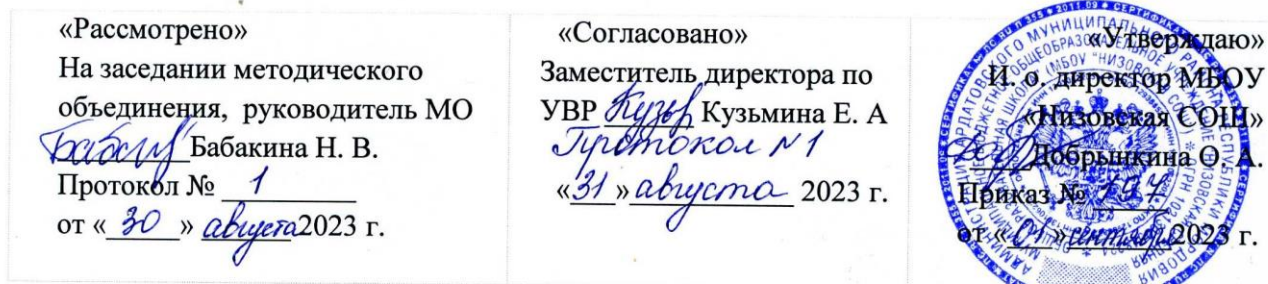 «Рассмотрено»
На заседании методического
объединения, руководитель МО
Бабакина Н. В.
Протокол № 1
от «30» августа 2023 г.
«Согласовано»
Заместитель директора по
УВР Кузьмина Е. А
Протокол №1
«31» августа 2023 г.
«Утверждаю»
И. о. директор МБОУ
«Низовская СОШ»
Добрынкина О. А.
Приказ №
от «01» сентября 2023 г.